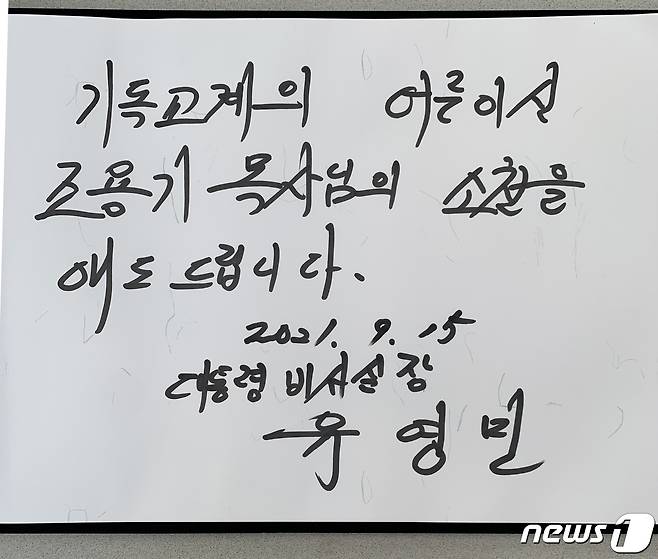 기독교계의 어른이신
조용기 목사님의 소천을
애도 드립니다.
2021. 9. 15
대통령 비서실장
유영민
news1